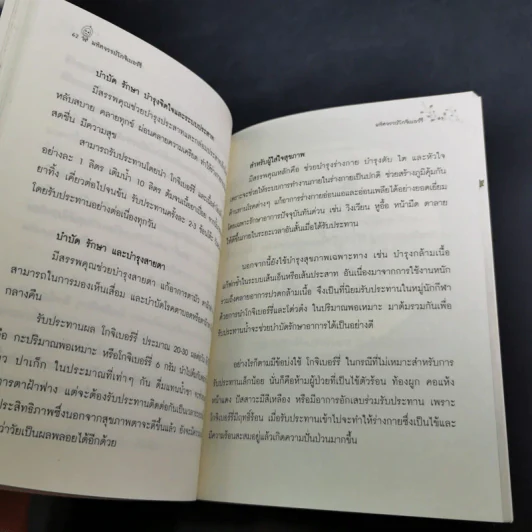 ๖๔ มหัศจรรย์โกจิเบอร์รี่
บำบัด รักษา บำรุงจิตใจและระบบประสาท
มีสรรพคุณช่วยบำรุงประสาทและกล่อมประสาท
หลับสบาย คลายทุกข์ ผ่อนคลายความเครียด ทำให้
สดชื่น มีความสุข
สามารถรับประทานโดยนำ โกจิเบอร์รี่ และเนื้อ
อย่างละ 1 ลิตร เติมน้ำ 10 ลิตร ต้มจนเนื้อยา
ยาทิ้ง เคี่ยวต่อไปจนข้น รับประทานครั้งละ 2-3 ช้อนโต๊ะ
โดยรับประทานอย่างต่อเนื่องทุกวัน
บำบัด รักษา และบำรุงสายตา
มีสรรพคุณช่วยบำรุงสายตา แก้อาการตามัว
สามารถในการมองเห็นเสื่อม และบำบัดโรคตาบอด
กลางคืน
รับประทานผล โกจิเบอร์รี่ ประมาณ 20-30
กะปริมาณพอเหมาะ หรือโกจิเบอร์รี่ 6 กรัม
ปาเก็ก ในประมาณที่เท่าๆ กัน ต้มแทนน้ำชา
การตาฝ้าฟาง แต่จะต้องรับประทานติดต่อกันเป็นเวลา
ประสิทธิภาพซึ่งนอกจากสุขภาพตาจะดีขึ้นแล้ว ยังจะมี
วัยเป็นผลพลอยได้อีกด้วย
มหัศจรรย์โกจิเบอร์รี่
สำหรับผู้ใส่ใจสุขภาพ
มีสรรพคุณหลักคือ ช่วยบำรุงร่างกาย บำรุงตับ ไต และหัวใจ
เพราะจะช่วยให้ระบบการทำงานภายในร่างกายเป็นปกติ ช่วยสร้างภูมิคุ้มกัน
ต้านทานโรคต่างๆ แก้อาการร่างกายอ่อนแอและอ่อนเพลียได้อย่างยอดเยี่ยม
โดยเฉพาะรักษาอาการปัจจุบันทันด่วน เช่น วิงเวียน หูอื้อ หน้ามืด ตาลาย
ให้ดีขึ้นภายในระยะเวลาอันสั้นเมื่อได้รับประทาน
นอกจากนี้ยังใช้บำรุงสุขภาพเฉพาะทาง เช่น บำรุงกล้ามเนื้อ
แก้ฟกช้ำในระบบเส้นเอ็นหรือเส้นประสาท อันเนื่องมาจากการใช้งานหนัก
รวมถึงคลายอาการปวดกล้ามเนื้อ จึงเป็นที่นิยมรับประทานในหมู่นักกีฬา
ด้วยการนำโกจิเบอร์รี่และโต่วต๋ง ในปริมาณพอเหมาะ มาต้มรวมกันเพื่อ
รับประทานน้ำจะช่วยบำบัดรักษาอาการได้เป็นอย่างดี
อย่างไรก็ตามมีข้อบ่งใช้ โกจิเบอร์รี่ ในกรณีที่ไม่เหมาะสำหรับการ
รับประทานเล็กน้อย นั่นก็คือห้ามผู้ป่วยที่เป็นไข้ตัวร้อน ท้องผูก คอแห้ง
หน้าแดง ปัสสาวะมีสีเหลือง หรือมีอาการอักเสบร่วมรับประทาน เพราะ
โกจิเบอร์รี่มีฤทธิ์ร้อน เมื่อรับประทานเข้าไปจะทำให้ร่างกายซึ่งเป็นไข้และ
มีความร้อนสะสมอยู่แล้วเกิดความปั่นป่วนมากขึ้น